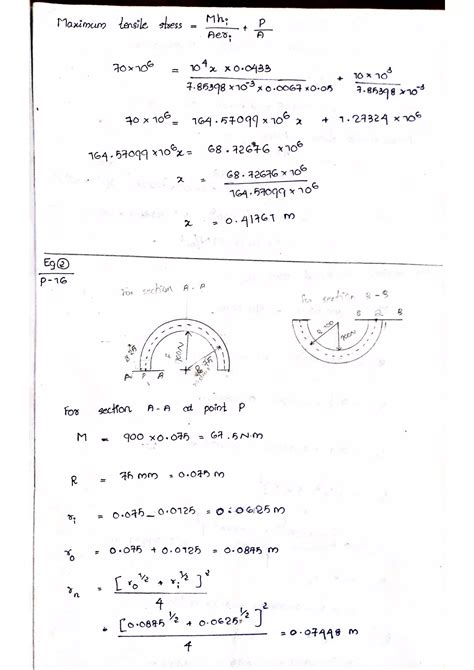 Maximum tensile stress = Mhi / Aeri + P / A
70×10⁶ = 10⁴x × 0.0433 / 7.85398 × 10⁻³ × 0.0067 × 0.05 + 10 × 10³ / 7.85398 × 10⁻³
70 × 10⁶ = 164.57099 × 10⁶ x + 1.27324 × 10⁶
164.57099 × 10⁶ x = 68.72676 × 10⁶
x = 68.72676 × 10⁶ / 164.57099 × 10⁶
x = 0.41761 m
Eg ②
P-16
For section A-A
For section B-B
900N
P A
For section A-A at point P
M = 900 × 0.075 = 67.5 N.m
R = 75 mm = 0.075 m
ri = 0.075 - 0.0125 = 0.0625 m
ro = 0.075 + 0.0125 = 0.0875 m
rn = [ro^1/2 + ri^1/2]² / 4
= [0.0875^1/2 + 0.0625^1/2]² / 4 = 0.07448 m